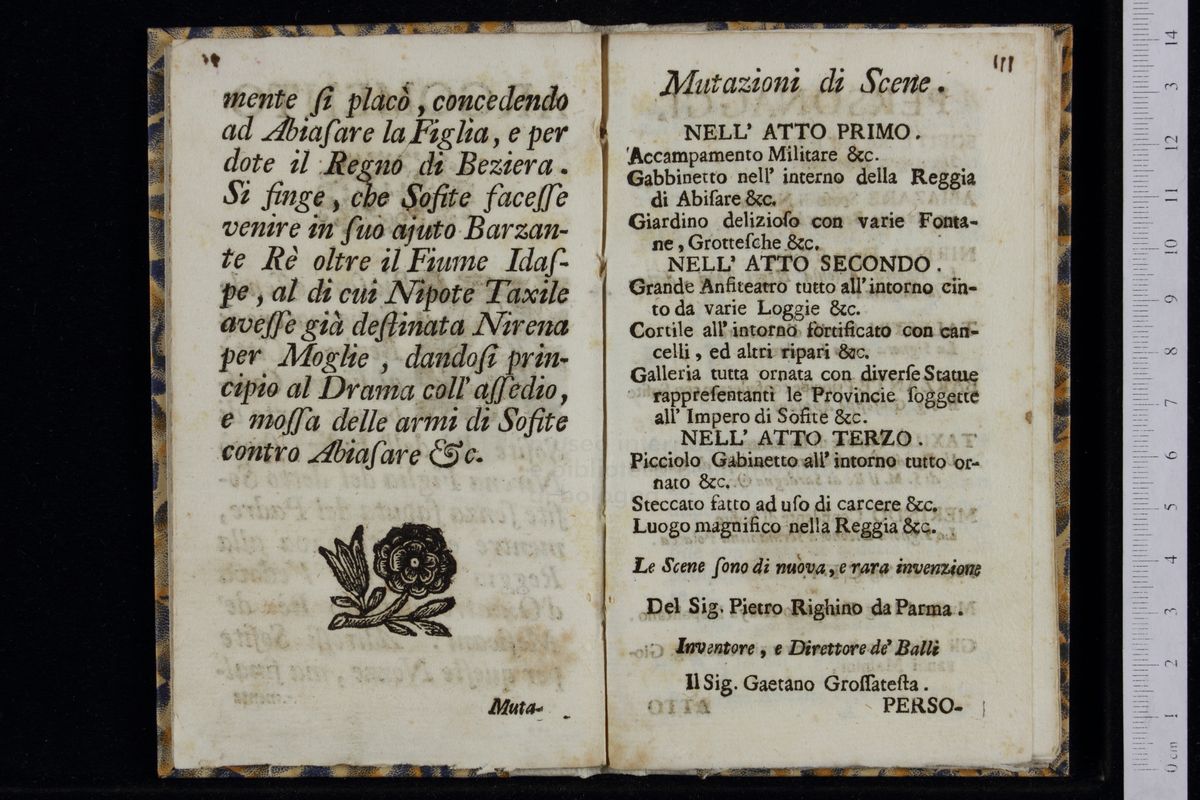 mente ſi placò, concedendo
ad Abiaſare la Figlia, e per
dote il Regno di Beziera.
Si finge, che Sofite faceſſe
venire in ſuo ajuto Barzan-
te Rè oltre il Fiume Idaſ-
pe, al di cui Nipote Taxile
aveſſe già deſtinata Nirena
per Moglie, dandoſi prin-
cipio al Drama coll' aſſedio,
e moſſa delle armi di Sofite
contro Abiaſare &c.
Muta-
III
Mutazioni di Scene.
NELL' ATTO PRIMO.
Accampamento Militare &c.
Gabbinetto nell' interno della Reggia
di Abiſare &c.
Giardino delizioſo con varie Fonta-
ne, Grotteſche &c.
NELL' ATTO SECONDO.
Grande Anfiteatro tutto all' intorno cin-
to da varie Loggie &c.
Cortile all' intorno fortificato con can-
celli, ed altri ripari &c.
Galleria tutta ornata con diverſe Statue
rappreſentanti le Provincie ſoggette
all' Impero di Sofite &c.
NELL' ATTO TERZO.
Picciolo Gabinetto all' intorno tutto or-
nato &c.
Steccato fatto ad uſo di carcere &c.
Luogo magnifico nella Reggia &c.
Le Scene ſono di nuova, e rara invenzione
Del Sig. Pietro Righino da Parma.
Inventore, e Direttore de' Balli
Il Sig. Gaetano Groſſateſta.
PERSO-
0 cm 1 2 3 4 5 6 7 8 9 10 11 12 13 14